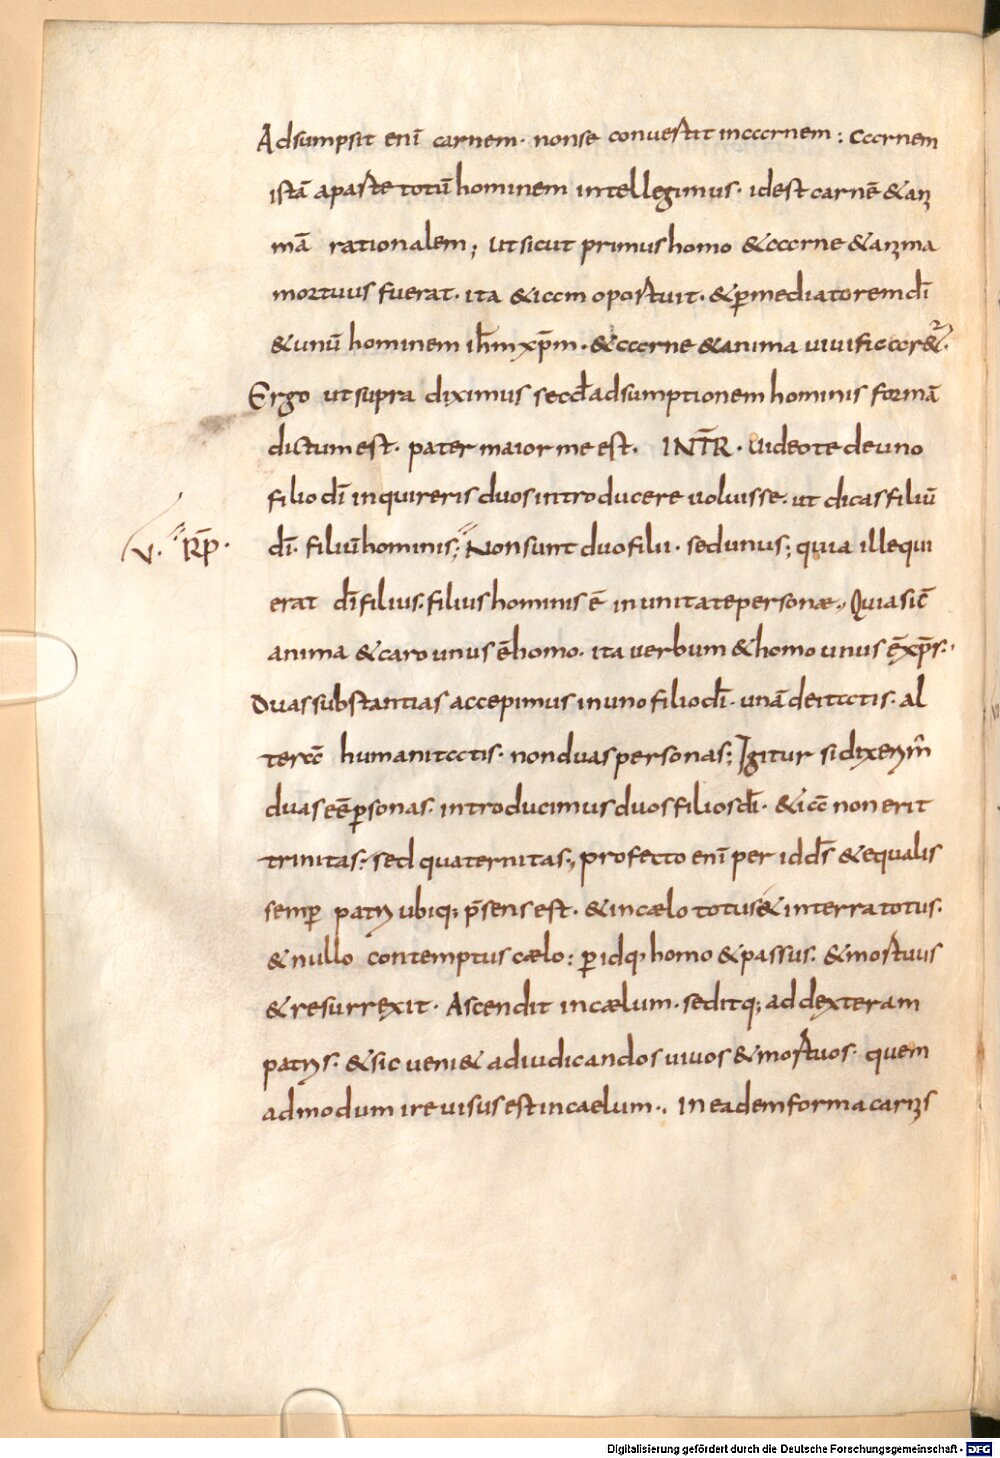 Adsumpsit enī carnem· nonse convertit incarnem: Carnem
istā aparte totū hominem intellegimus· idest carnē &ani
mā rationalem; utsicut primushomo &carne &anima
mortuus fuerat· ita &iam oportuit· &p̄mediatoremdī
&unū hominem ihm̄xp̄m·&carne &anima vivificar&·
Ergo utsupra diximus secd̄adsumptionem hominis formā
dictumest· pater maior me est· INTR̄· Videote deuno
filio dī inquireris duosintroducere voluisse· ut dicasfiliū
v· R̄p· dī· filiūhominis; Nonsunt duofilii· sedunus; quia illequi
erat dīfilius·filiushominis ē inunitatepersonæ., Quiasic̄
anima &caro unus ēhomo· ita verbum &homo unus ēxp̄s·
Duassubstantias accepimus inuno filiodī· unā deitatis· al
terā humanitatis· nonduaspersonas; Igitur sidixerim̄
duaseēp̄sonas· introducimusduosfiliosdī· &iā nonerit
trinitas; sed quaternitas., profecto enī per id ds̄ &equalis
semp̄ patri ubiq; p̄sensest· &incælo totus& interra totus·
&nullo contemptus cælo: p̄ idq, homo &passus· &mortuus
&resurrexit· Ascendit incælum·seditq; addexteram
patris· &sic veni& adiudicandos vivos &mortuos· quem
admodum ire visus estincaelum., Ineademforma carnis
Digitalisierung gefördert durch die Deutsche Forschungsgemeinschaft - DFG